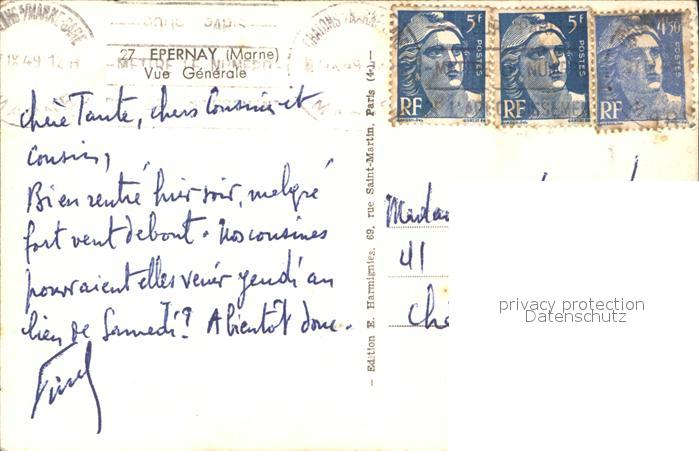 CHALONS S/MARNE GARE
IX 49
27 EPERNAY (Marne)
Vue Générale
METTRE LE NUMERO
5F
POSTES
RF
5F
POSTES
RF
4F50
POSTES
RF
chère Tante, chers Cousine et
Cousin,
Bien rentré hier soir, malgré
fort vent debout. Nos cousines
pourraient elles venir jeudi au
lieu de Samedi? A bientôt donc.
— Edition E. Harmignies, 69, rue Saint-Martin, Paris (4e). —
41
privacy protection
Datenschutz